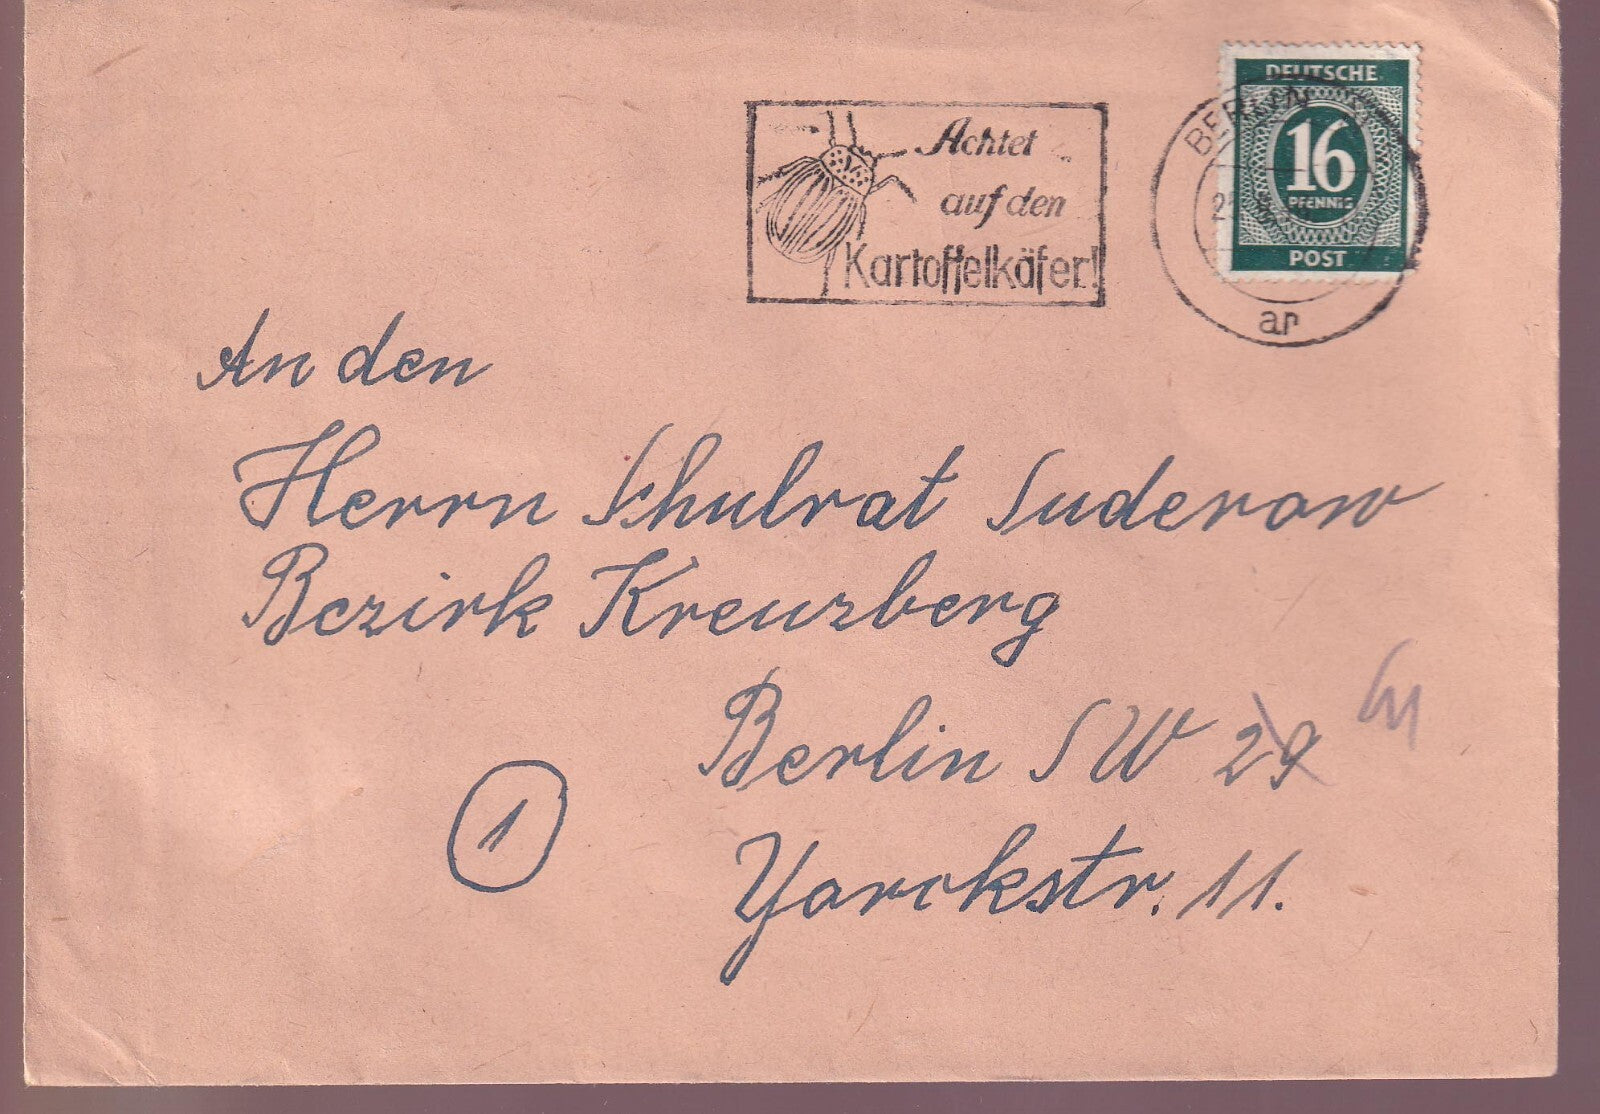 Achtet
auf den
Kartoffelkäfer!
BERLIN
ar
DEUTSCHE
16
PFENNIG
POST
An den
Herrn Schulrat Suderow
Bezirk Kreuzberg
Berlin SW 29
1
Yorckstr. 11.